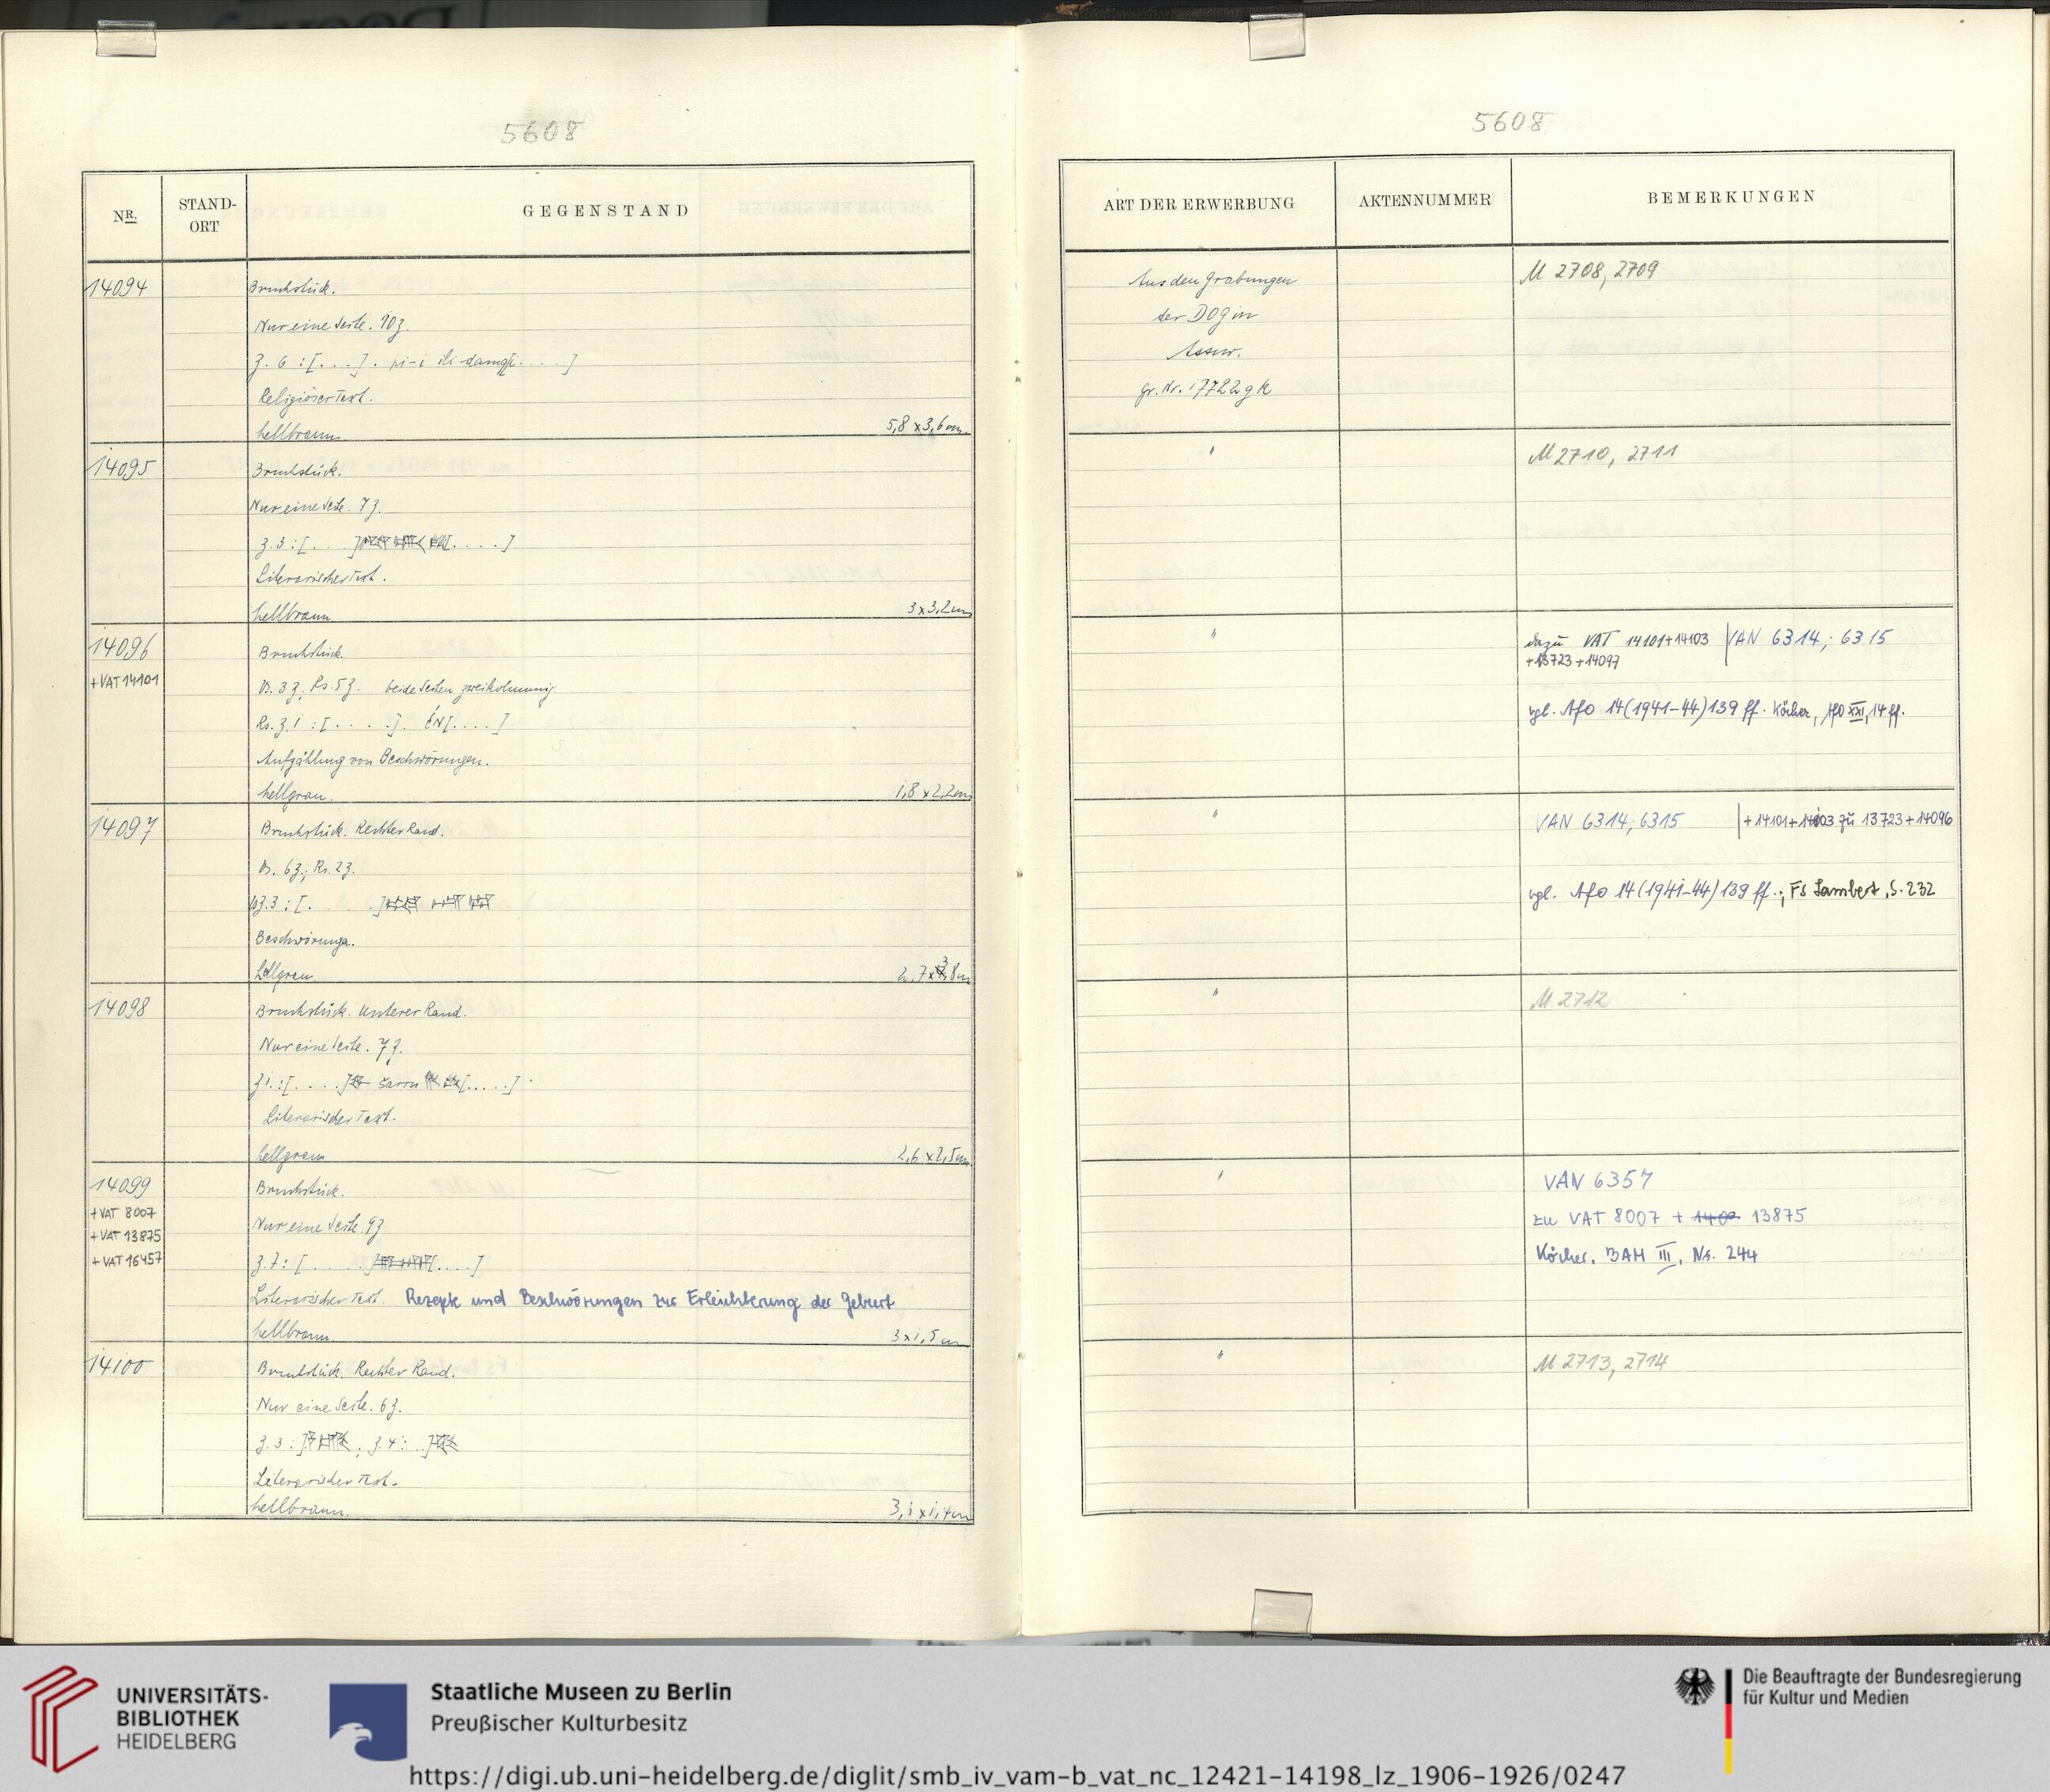 5608
NR.
STAND-
ORT
GEGENSTAND
14094
Bruchstück.
Nur eine Seite. 10 Z.
Z. 6 : [. . .] . ni-i ili-damq[. . . .]
Religiöser Text.
hellbraun 5,8 x 3,6 cm
14095
Bruchstück.
Nur eine Seite. 7 Z.
Z. 3 : [. . . .] [. . . . .]
Literarischer Text.
hellbraun 3 x 3,2 cm
14096
+ VAT 14101
Bruchstück.
Vs. 3 Z., Rs. 5 Z. beide Seiten zweikolumnig.
Rs. Z. 1 : [. . . . .] . ÉN[. . . .]
Aufzählung von Beschwörungen.
hellgrau. 1,8 x 2,2 cm
14097
Bruchstück. Rechter Rand.
Vs. 6 Z.; Rs. 2 Z.
Vs Z. 3 : [. . . .]
Beschwörung.
hellgrau 2,7 x 3,8 cm
14098
Bruchstück. Unterer Rand.
Nur eine Seite. 7 Z.
Z 1. : [. . . .] šarru [. . . . .]
Literarischer Text.
hellgrau 2,6 x 2,5 cm
14099
+ VAT 8007
+ VAT 13875
+ VAT 16457
Bruchstück.
Nur eine Seite. 9 Z
Z. 7 : [. . . . .] [. . . .]
Literarischer Text. Rezepte und Beschwörungen zur Erleichterung der Geburt
hellbraun 3 x 1,5 cm
14100
Bruchstück. Rechter Rand.
Nur eine Seite. 6 Z.
Z. 3 : ] ; Z. 4 : . .]
Literarischer Text.
hellbraun. 3,1 x 1,4 cm
5608
ART DER ERWERBUNG
AKTENNUMMER
BEMERKUNGEN
Aus den Grabungen
der DOG in
Assur.
Gr. Nr. 17722 gk
M 2708, 2709
" M 2710, 2711
" dazu VAT 14101+14103 | VAN 6314; 6315
+ 13723 + 14097
vgl. AfO 14 (1941-44) 139 ff. Köcher, AfO XXI, 14 ff.
" VAN 6314; 6315 | + 14101 + 14103 zu 13723 + 14096
vgl. AfO 14 (1941-44) 139 ff.; Fs Lambert, S. 232
" M 2712
" VAN 6357
zu VAT 8007 + 13875
Köcher, BAM III, Nr. 244
" M 2713, 2714
UNIVERSITÄTS-
BIBLIOTHEK
HEIDELBERG
Staatliche Museen zu Berlin
Preußischer Kulturbesitz
Die Beauftragte der Bundesregierung
für Kultur und Medien
https://digi.ub.uni-heidelberg.de/diglit/smb_iv_vam-b_vat_nc_12421-14198_lz_1906-1926/0247